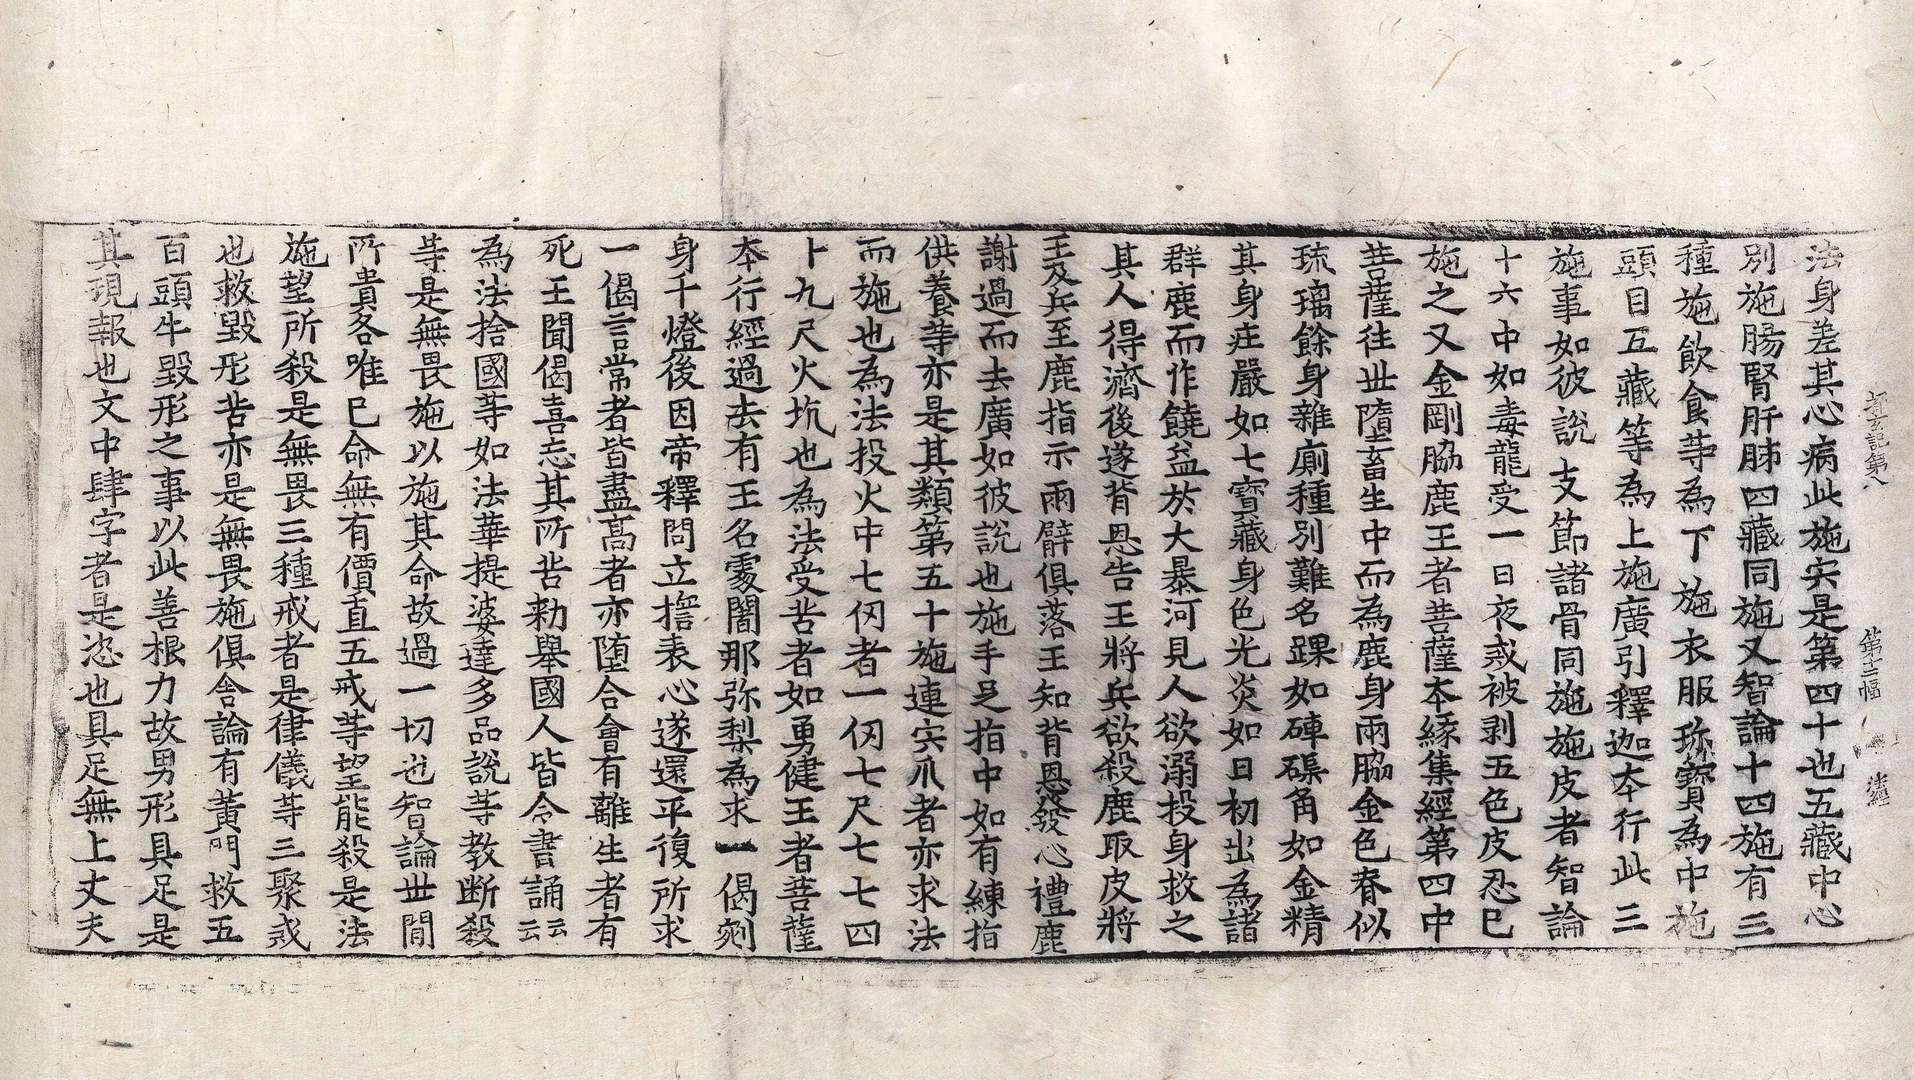 探玄記第八 第十二幅 法經
法身差其心病此施宍是第四十也五藏中心
別施腸腎肝肺四藏同施又智論十四施有三
種施飲食䒭為下施衣服珎寶為中施
頭目五藏等為上施廣引釋迦夲行此三
施事如彼說支節諸骨同施施皮者智論
十六中如毒龍受一日夜戒被剥五色皮忍已
施之又金剛脇鹿王者菩薩夲緣集經第四中
菩薩往世墮畜生中而為鹿身兩脇金色脊似
琉璃餘身雜廁種別難名踝如硨磲角如金精
其身庄嚴如七寶藏身色光炎如日初出為諸
群鹿而作饒益於大暴河見人欲溺投身救之
其人得濟後遂背恩告王將兵欲殺鹿取皮將
王及兵至鹿指示兩臂俱落王知背恩發心禮鹿
謝過而去廣如彼說也施手足指中如有練指
供養䒭亦是其類第五十施連宍爪者亦求法
而施也為法投火中七仞者一仞七尺七七四
十九尺火坑也為法受苦者如勇健王者菩薩
夲行經過去有王名䖍闍那弥梨為求一偈剜
身千燈後因帝釋問立擔表心遂還平復所求
一偈言常者皆盡高者亦堕合會有離生者有
死王聞偈喜忘其所苦勑舉國人皆令書誦云云
為法捨國等如法華提婆達多品說等教断殺
䒭是無畏施以施其命故過一切也智論世間
所貴各唯已命無有價直五戒等望能殺是法
施望所殺是無畏三種戒者是律儀等三聚戒
也救毀形苦亦是無畏施俱舍論有黃門救五
百頭牛毀形之事以此善根力故男形具足是
其現報也文中肆字者是恣也具足無上丈夫